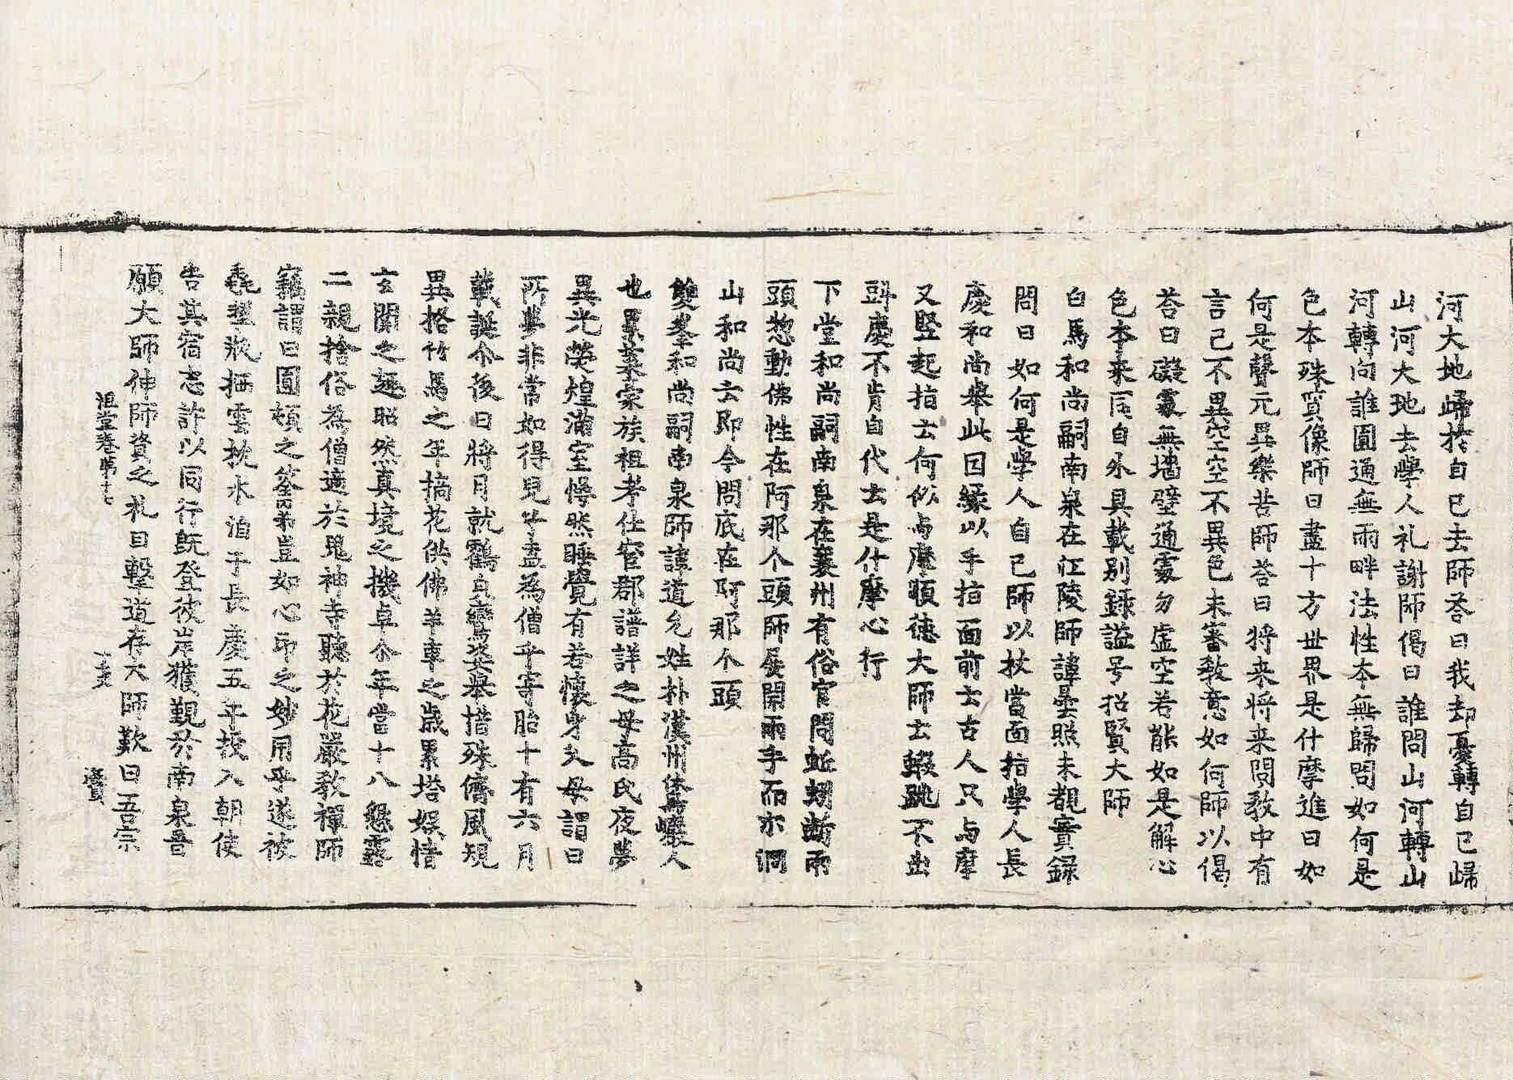 河大地歸於自己去師荅曰我却憂轉自己歸
山河大地去學人礼謝師偈曰誰問山河轉山
河轉向誰圓通無兩畔法性本無歸問如何是
色本殊質像師曰盡十方世界是什摩進曰如
何是聲元異樂苦師荅曰将来将来問教中有
言己不異空空不異色未審教意如何師以偈
荅曰礙處無墻壁通處勿虚空若能如是解心
色本来同自外具載别録謚号招賢大師
白馬和尚嗣南泉在江陵師諱曇照未覩實録
問曰如何是學人自己師以杖當面指學人長
慶和尚舉此因緣以手指面前云古人只与摩
又竪起指云何似与摩順德大師云蝦跳不出
㪷慶不肯自代云是什摩心行
下堂和尚嗣南泉在襄州有俗官問蚯蚓斬兩
頭惣動佛性在阿那个頭師展開兩手而示洞
山和尚云即今問底在阿那个頭
雙峯和尚嗣南泉師諱道允姓朴漢州鵂巖人
也累葉豪族祖考仕宦郡譜詳之母高氏夜夢
異光熒煌滿室愕然睡覺有若懷身父母謂曰
所夢非常如得兒子盍為僧乎寄胎十有六月
載誕尒後日将月就鶴皃鸞姿舉措殊儕風規
異格竹馬之年摘花供佛羊車之歲累塔娛情
玄關之趣昭然真境之機卓尒年當十八懇露
二親捨俗為僧適於鬼神寺聽於花嚴教禪師
竊謂曰圓頓之筌㢧豈如心印之妙用乎遂被
毳挈瓶栖雲枕水洎于長慶五年投入朝使
告其宿志許以同行既登彼岸獲覲於南泉普
願大師伸師資之礼目擊道存大師歎曰吾宗
祖堂卷第十七